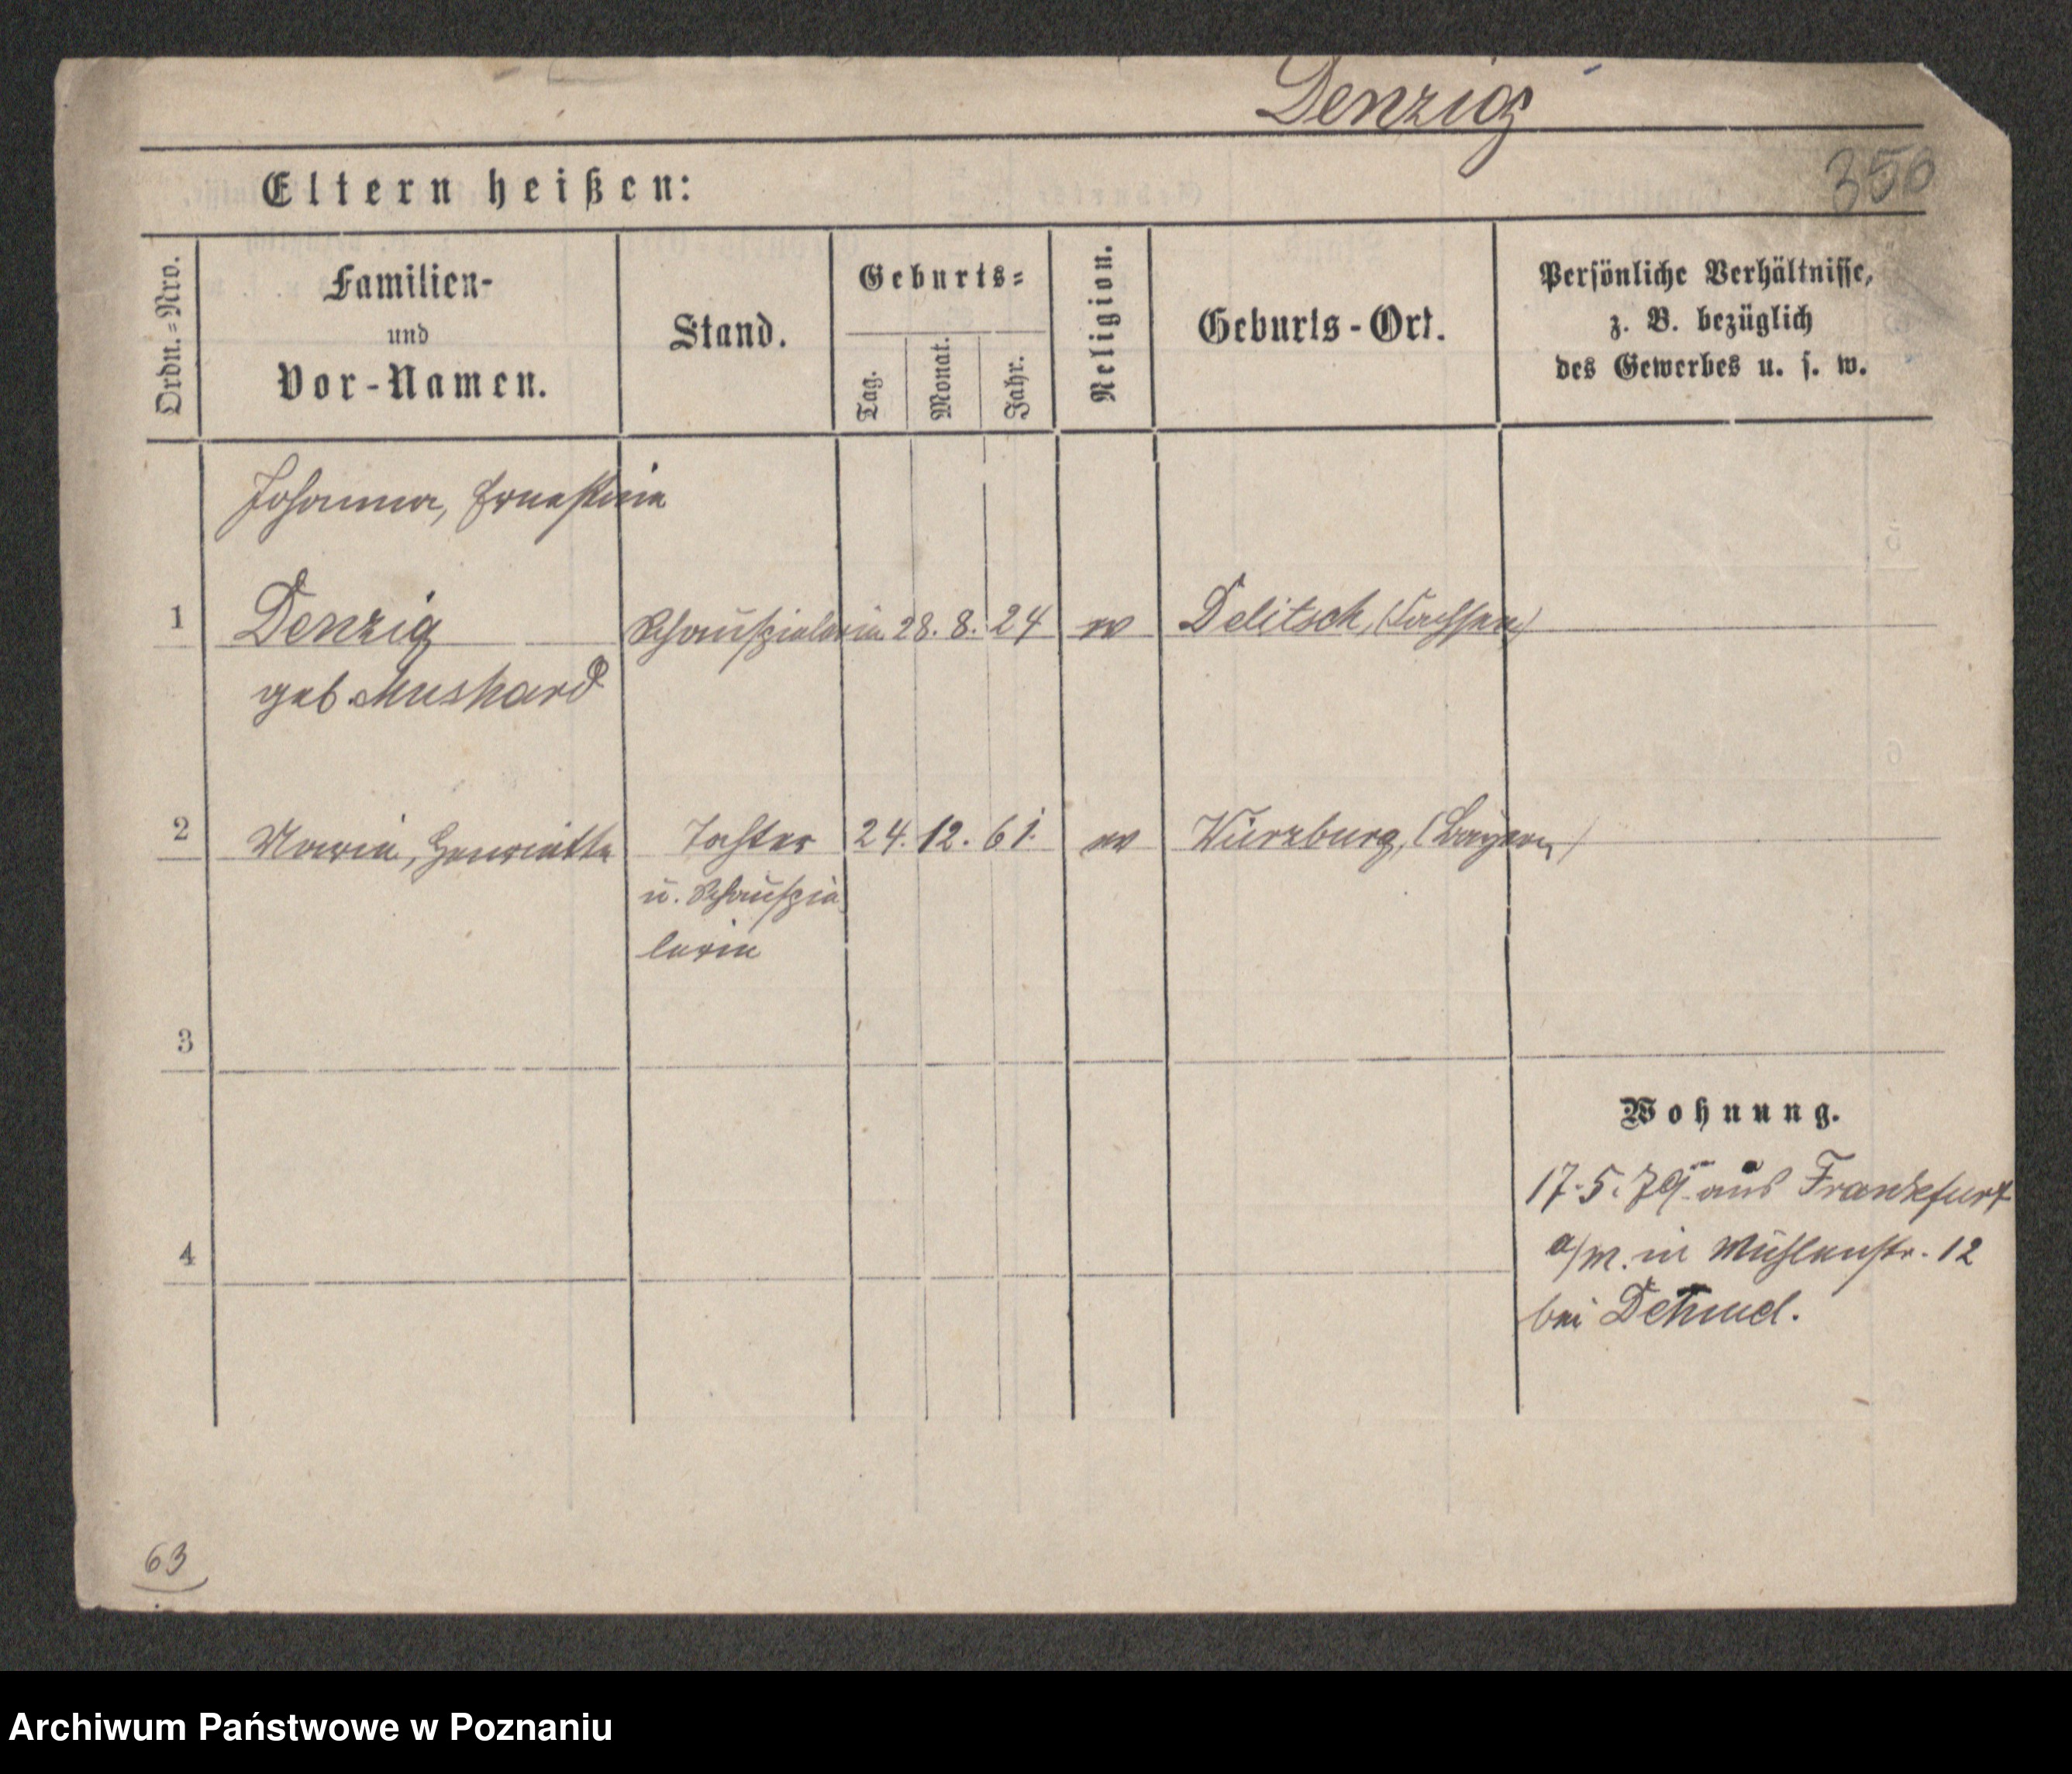 Denzig
350
Eltern heißen:
Ordn.=Nro.
Familien-
und
Vor-Namen.
Stand.
Geburts=
Tag.
Monat.
Jahr.
Religion.
Geburts-Ort.
Persönliche Verhältnisse,
z. B. bezüglich
des Gewerbes u. s. w.
Johanna, Ernestine
1 Denzig Schauspielerin 28. 8. 24 ev Delitsch, (Sachsen)
geb Mushard
2 Maria, Henriette Tochter 24. 12. 61. ev Würzburg, (Bayern)
u. Schauspie
lerin
3
Wohnung.
17.5.79 aus Frankfurt
4
a/M. in Mühlenstr. 12
bei
63
Archiwum Państwowe w Poznaniu